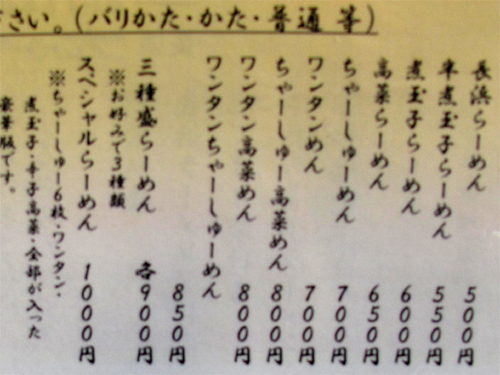 さい。（バリかた・かた・普通 等）
長浜らーめん 500円
半煮玉子らーめん 550円
煮玉子らーめん 600円
高菜らーめん 650円
ちゃーしゅーめん 700円
ワンタンめん 700円
ちゃーしゅー高菜めん 800円
ワンタン高菜めん 800円
ワンタンちゃーしゅーめん 850円
三種盛らーめん 各900円
※お好みで3種類
スペシャルらーめん 1000円
※ちゃーしゅー6枚・ワンタン・
煮玉子・辛子高菜・全部が入った
豪華版です。